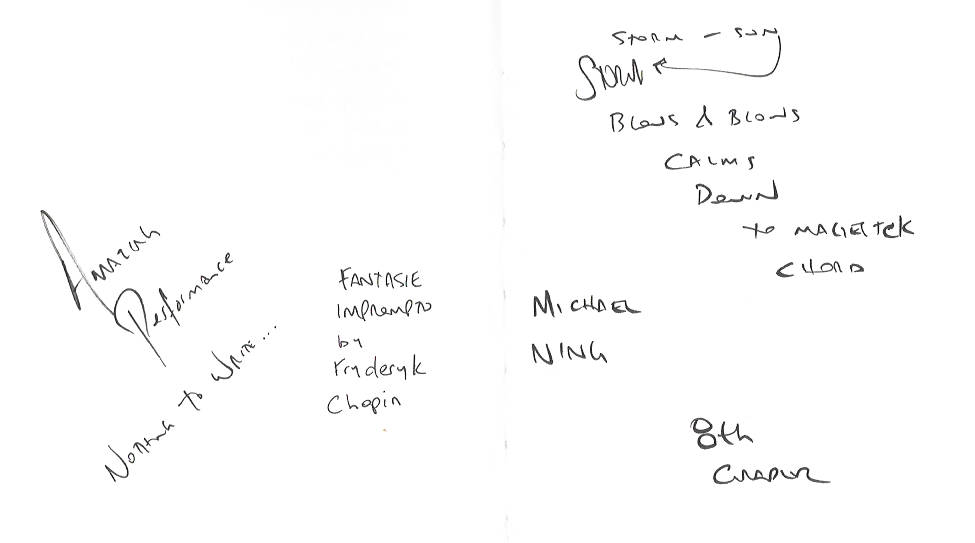 AMAZING
Performance
NOTHING TO WRITE...
FANTASIE
IMPROMPTO
by
Fryderyk
Chopin
STORM – SUN
BLOWS & BLOWS
CALMS
DOWN
TO
CHORD
MICHAEL
NING
8th